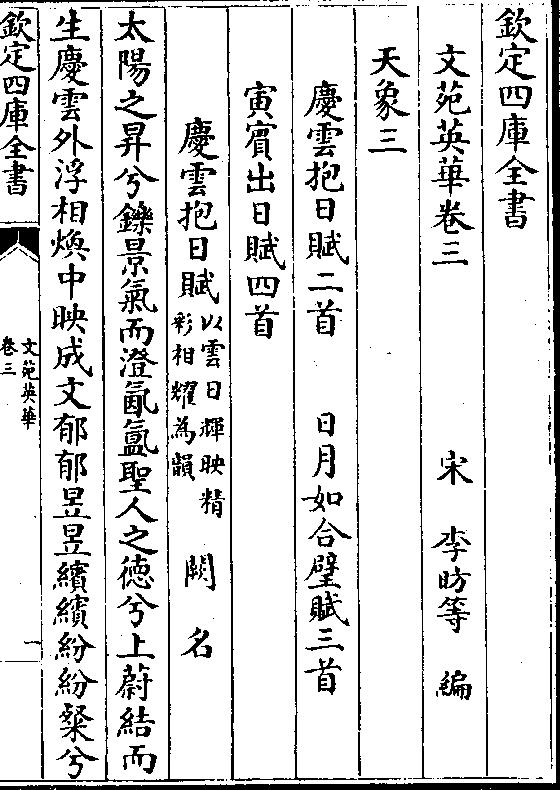 欽定四庫全書
文苑英華卷三
宋 李昉等 編
天象三
慶雲抱日賦二首 日月如合璧賦三首
寅賓出日賦四首
慶雲抱日賦 以雲日輝映精
彩相耀為韻 闕名
太陽之昇兮鑠景氣而澄氤氲聖人之德兮上蔚結而
生慶雲外浮相煥中映成文郁郁昱昱繽繽紛紛粲兮
欽定四庫全書
文苑英華
卷三
一